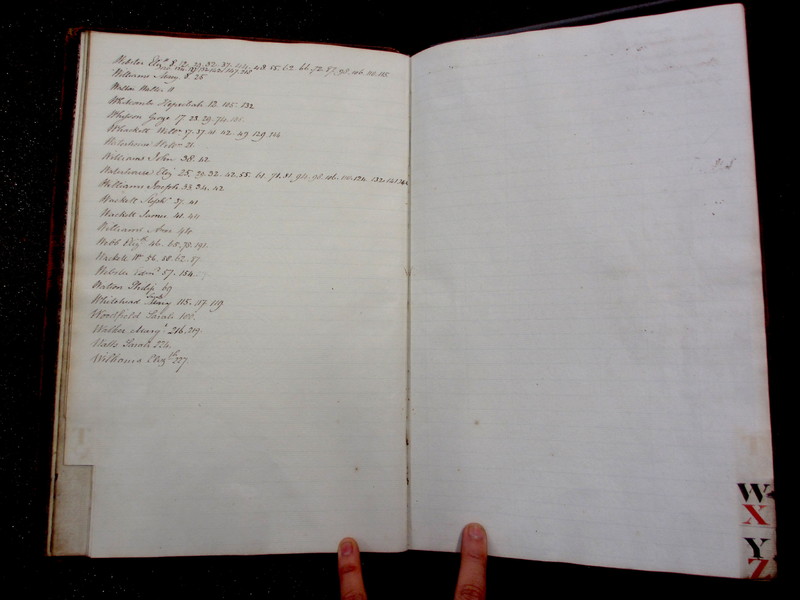 Webster Eliz.th 8. 12. 29. 32. 37. 44. 48. 55. 62. 66. 72. 87. 98. 106. 110. 118
Williams Amy 8. 25
Walter 11
Whitcombe Hepzibah 12. 105. 132
Whipson George 17. 23. 29. 74.
Whackett Willm 17. 37. 41. 42. 49. 129. 
Waterhouse Willm 21
Williams John 38. 42
Waterhouse Eliz 25. 29. 32. 42. 55. 61. 71. 81. 94. 98. 106.
Williams Joseph 33. 34. 42
Wackett Steph. 37. 41
Wackett James 41. 44
Williams Ann 44
Webb Eliz.th 46. 65. 75. 191.
Wackett Wm 56. 58. 62. 87
Webster Edm.d 57. 154.
Watson Philip 69
Whitehead Mary 115. 117. 119
Woodfield Sarah 100.
Walker Mary 216. 219.
Watts Sarah 224.
Williams Eliz.th 227.
W
X
Y
Z